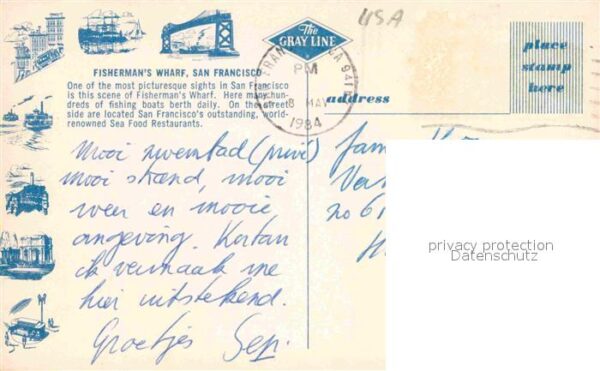 USA
The
GRAY LINE
FISHERMAN'S WHARF, SAN FRANCISCO
One of the most picturesque sights in San Francisco
is this scene of Fisherman's Wharf. Here many hun-
dreds of fishing boats berth daily. On the street
side are located San Francisco's outstanding, world-
renowned Sea Food Restaurants.
PM
8 MAY
1984
address
place
stamp
here
Mooi zwembad (privé)
mooi strand, mooi
weer en mooie
omgeving. Kortom
ik vermaak me
hier uitstekend.
Groetjes
fam
no 61
privacy protection
Datenschutz